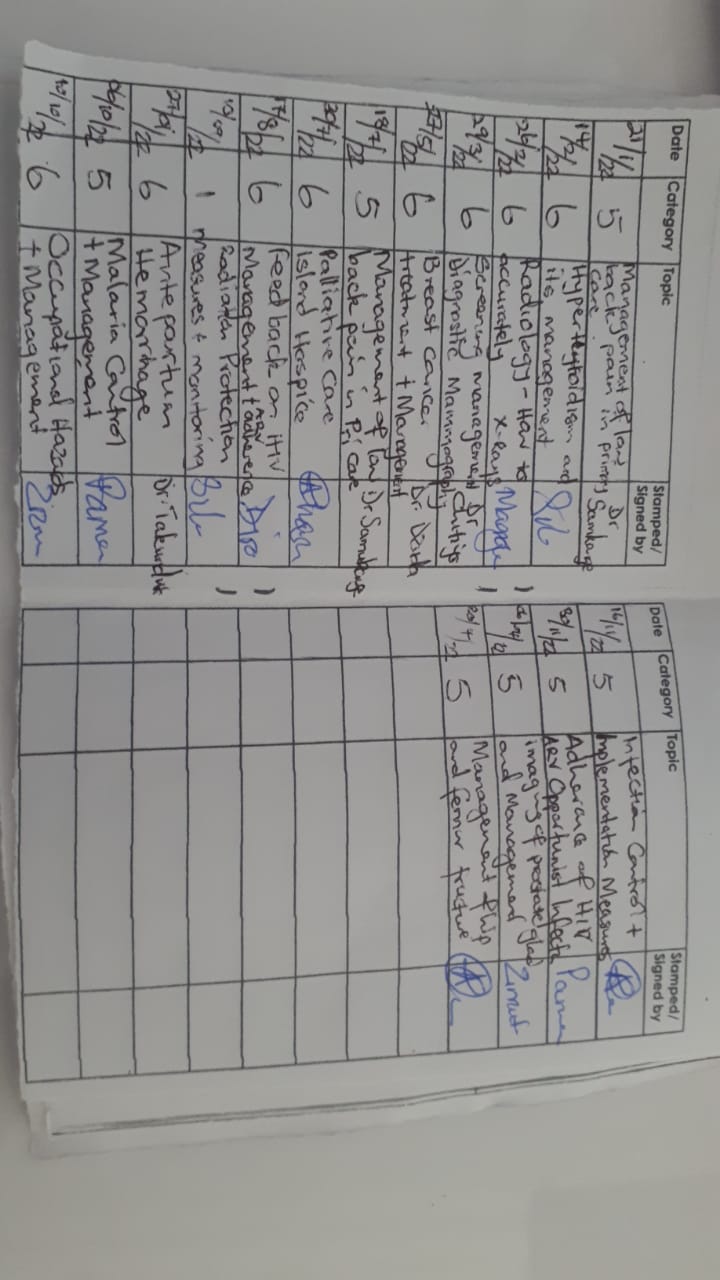 Date Category Topic Stamped/ Signed by
21/1/22 5 Management of low back pain in primary care Dr Samkange
14/2/22 6 Hyperthyroidism and its management
26/2/22 6 Radiology - How to accurately x-rays
29/3/22 6 Screening management Diagnostic Mammography Dr Chitiyo
27/5/22 6 Breast cancer treatment + Management Dr
18/7/22 5 Management of low back pain in Pri care Dr Samkange
30/7/22 6 Palliative care Island Hospice
17/8/22 6 Feedback on HIV Management + ARV adherence
13/09/22 1 Radiation Protection measures + monitoring
27/9/22 6 Antepartum Hemorrhage
06/10/22 5 Malaria Control + Management
10/10/22 6 Occupational Hazards + Management
Date Category Topic Stamped/ Signed by
16/11/22 5 Infection Control + Implementation Measures
30/11/22 5 Adherance of HIV ARV Opportunist Infecta
5 imaging of prostate glad and Management
5 Management of hip and femur fracture